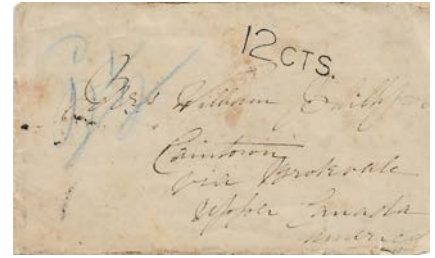 12 CTS.
Mrs William
Caintown
via Brokvale
Upper Canada
America